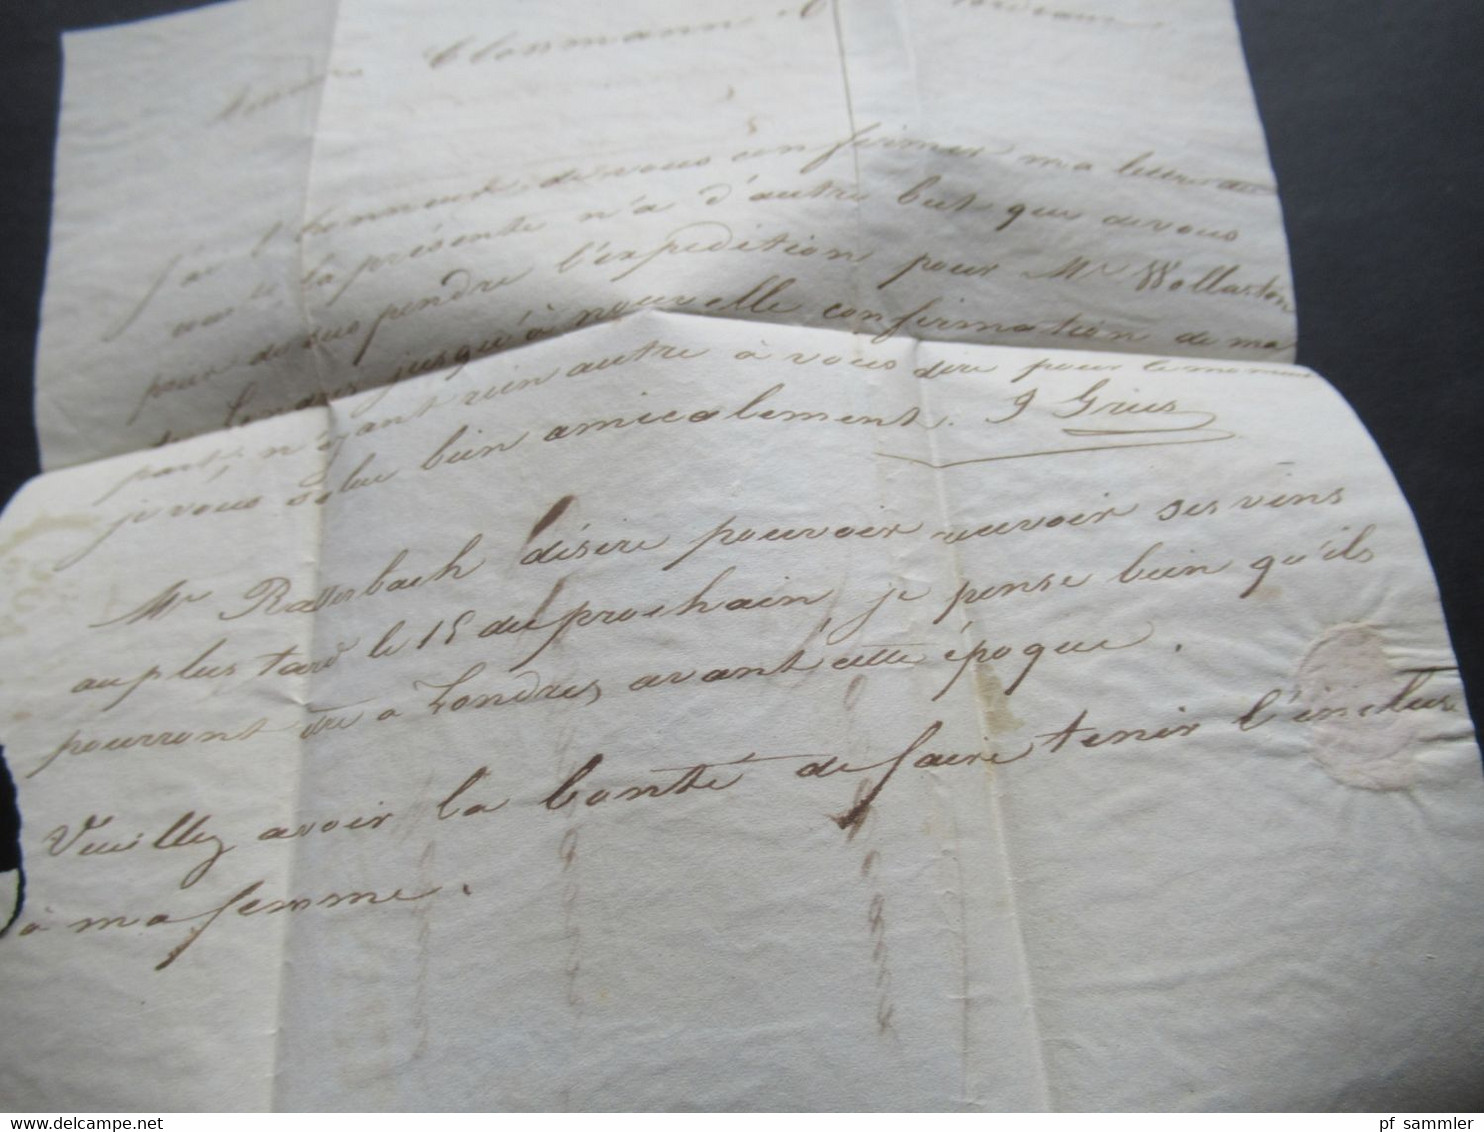 Messieurs Clossmann & Bordeaux
J'ai l'honneur de vous confirmer ma lettre de
la présente n'a d'autre but que de vous
pour de suspendre l'expédition pour Mr Wollaston
de Londres jusqu'à nouvelle confirmation de ma
part, n'ayant rien autre à vous dire pour le moment
je vous salue bien amicalement. J Gries
Mr Rattersbach désire pouvoir recevoir ses vins
au plus tard le 15 du prochain, je pense bien qu'ils
pourront être a Londres avant cette époque.
Veuillez avoir la bonté de faire tenir l'incluse
à ma femme.
pf sammler